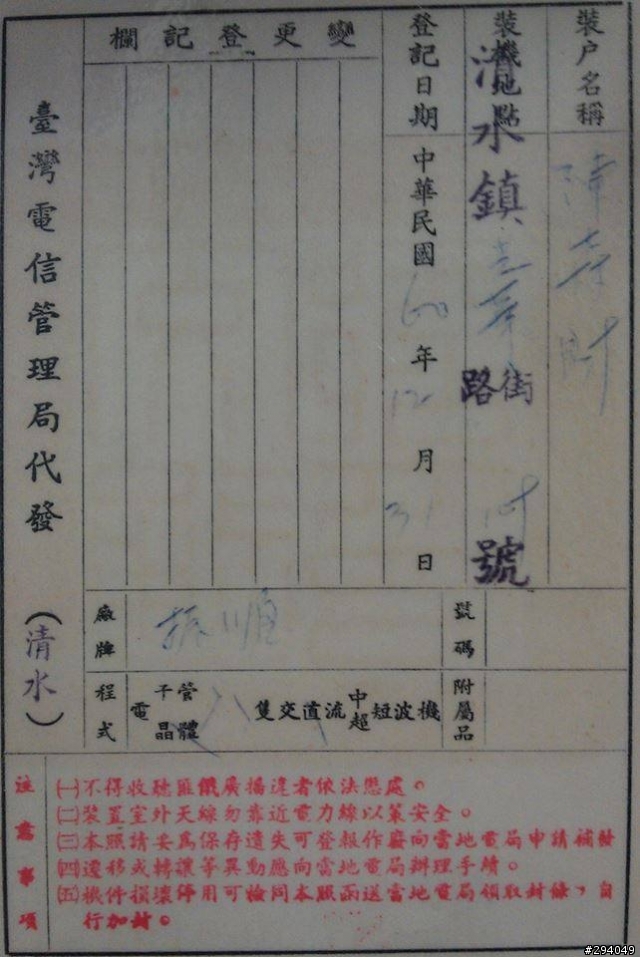 裝户名稱
裝機地點
清水鎮
路街
號
登記日期
中華民國60年12月31日
變更登記欄
臺灣電信管理局代發
(清水)
廠牌
振順
號碼
程式
電子管
晶體
隻交直流中短波機
超
附屬品
注意事項
㈠不得收聽匪俄廣播違者依法懲處。
㈡裝置室外天線勿靠近電力線以策安全。
㈢本照請妥為保存遺失可登報作廢向當地電局申請補發
㈣遷移或轉讓等異動應向當地電局辦理手續。
㈤機件損壞停用可檢同本照函送當地電局領取封條,自
行加封。
#294049